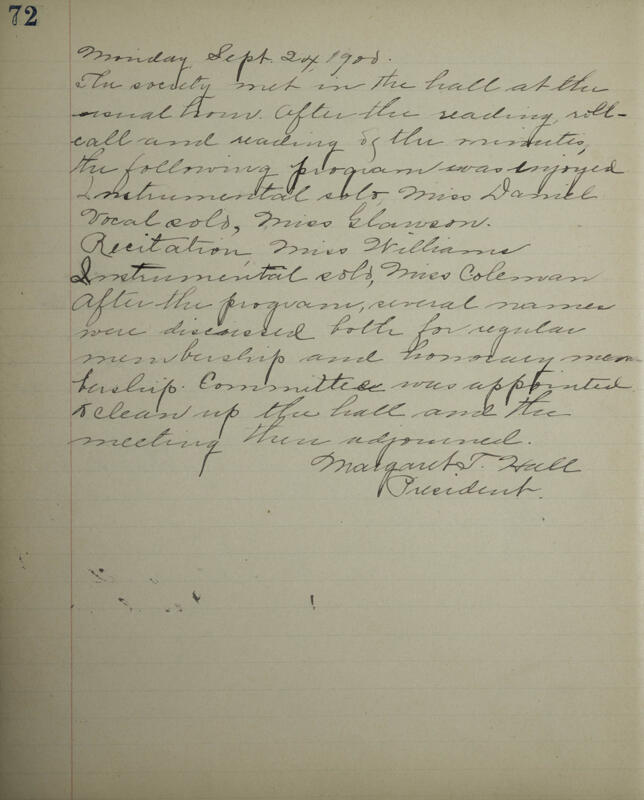 72
Monday, Sept. 24, 1900.
The society met in the hall at the
usual hour. After the reading, roll-
call and reading of the minutes,
the following program was enjoyed
Instrumental solo, Miss Daniel
Vocal solo, Miss Glawson.
Recitation, Miss Williams
Instrumental solo, Miss Coleman
After the program, several names
were discussed both for regular
membership and honorary mem-
bership. Committee was appointed
to clean up the hall and the
meeting then adjourned.
Margaret T. Hall
President.